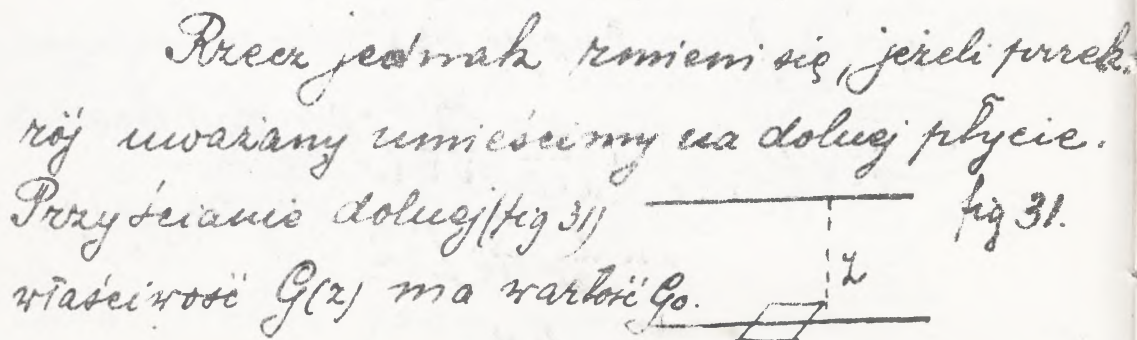 Rzecz jednak zmieni się, jeżeli przek-
rój uważany umieścimy na dolnej płycie.
Przy ścianie dolnej (fig 31) fig 31.
z
właściwość G(z) ma wartość G₀.